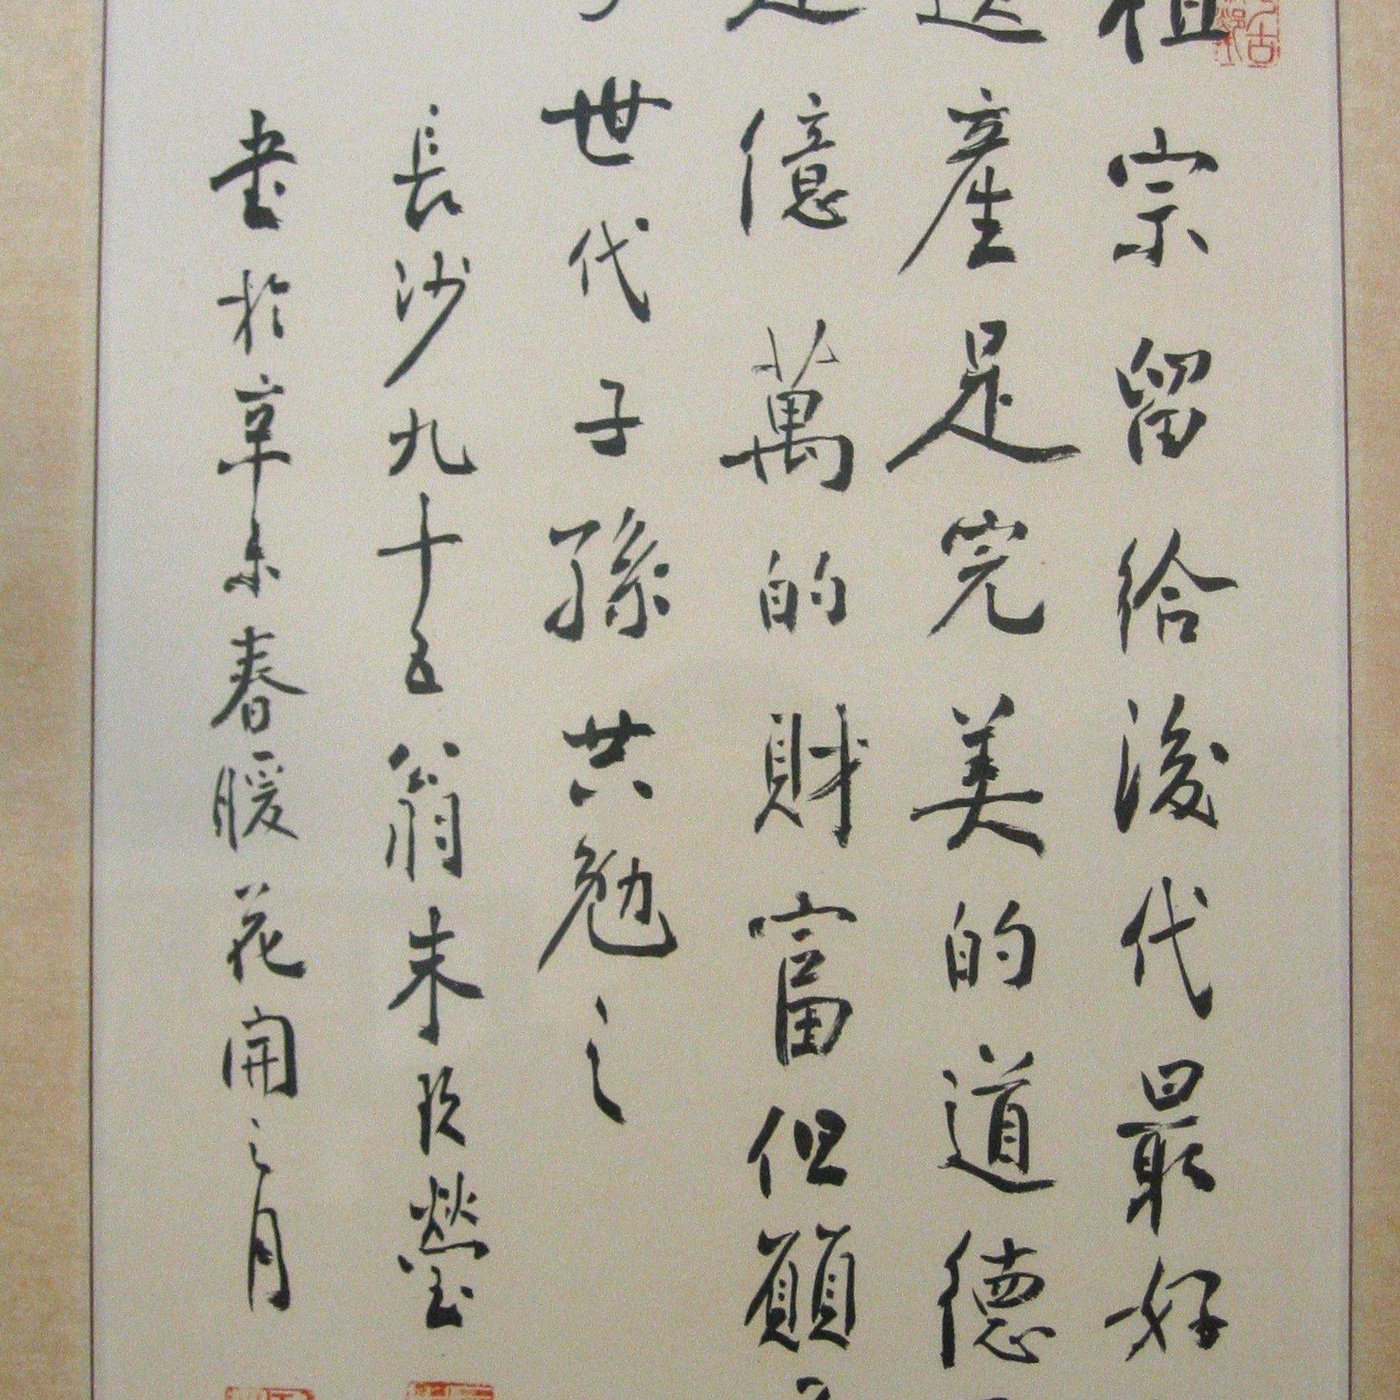 祖宗留給後代最好
遺產是完美的道德
是億萬的財富但願
世代子孫共勉之
長沙九十五翁朱玖瑩
書於辛未春暖花開之月